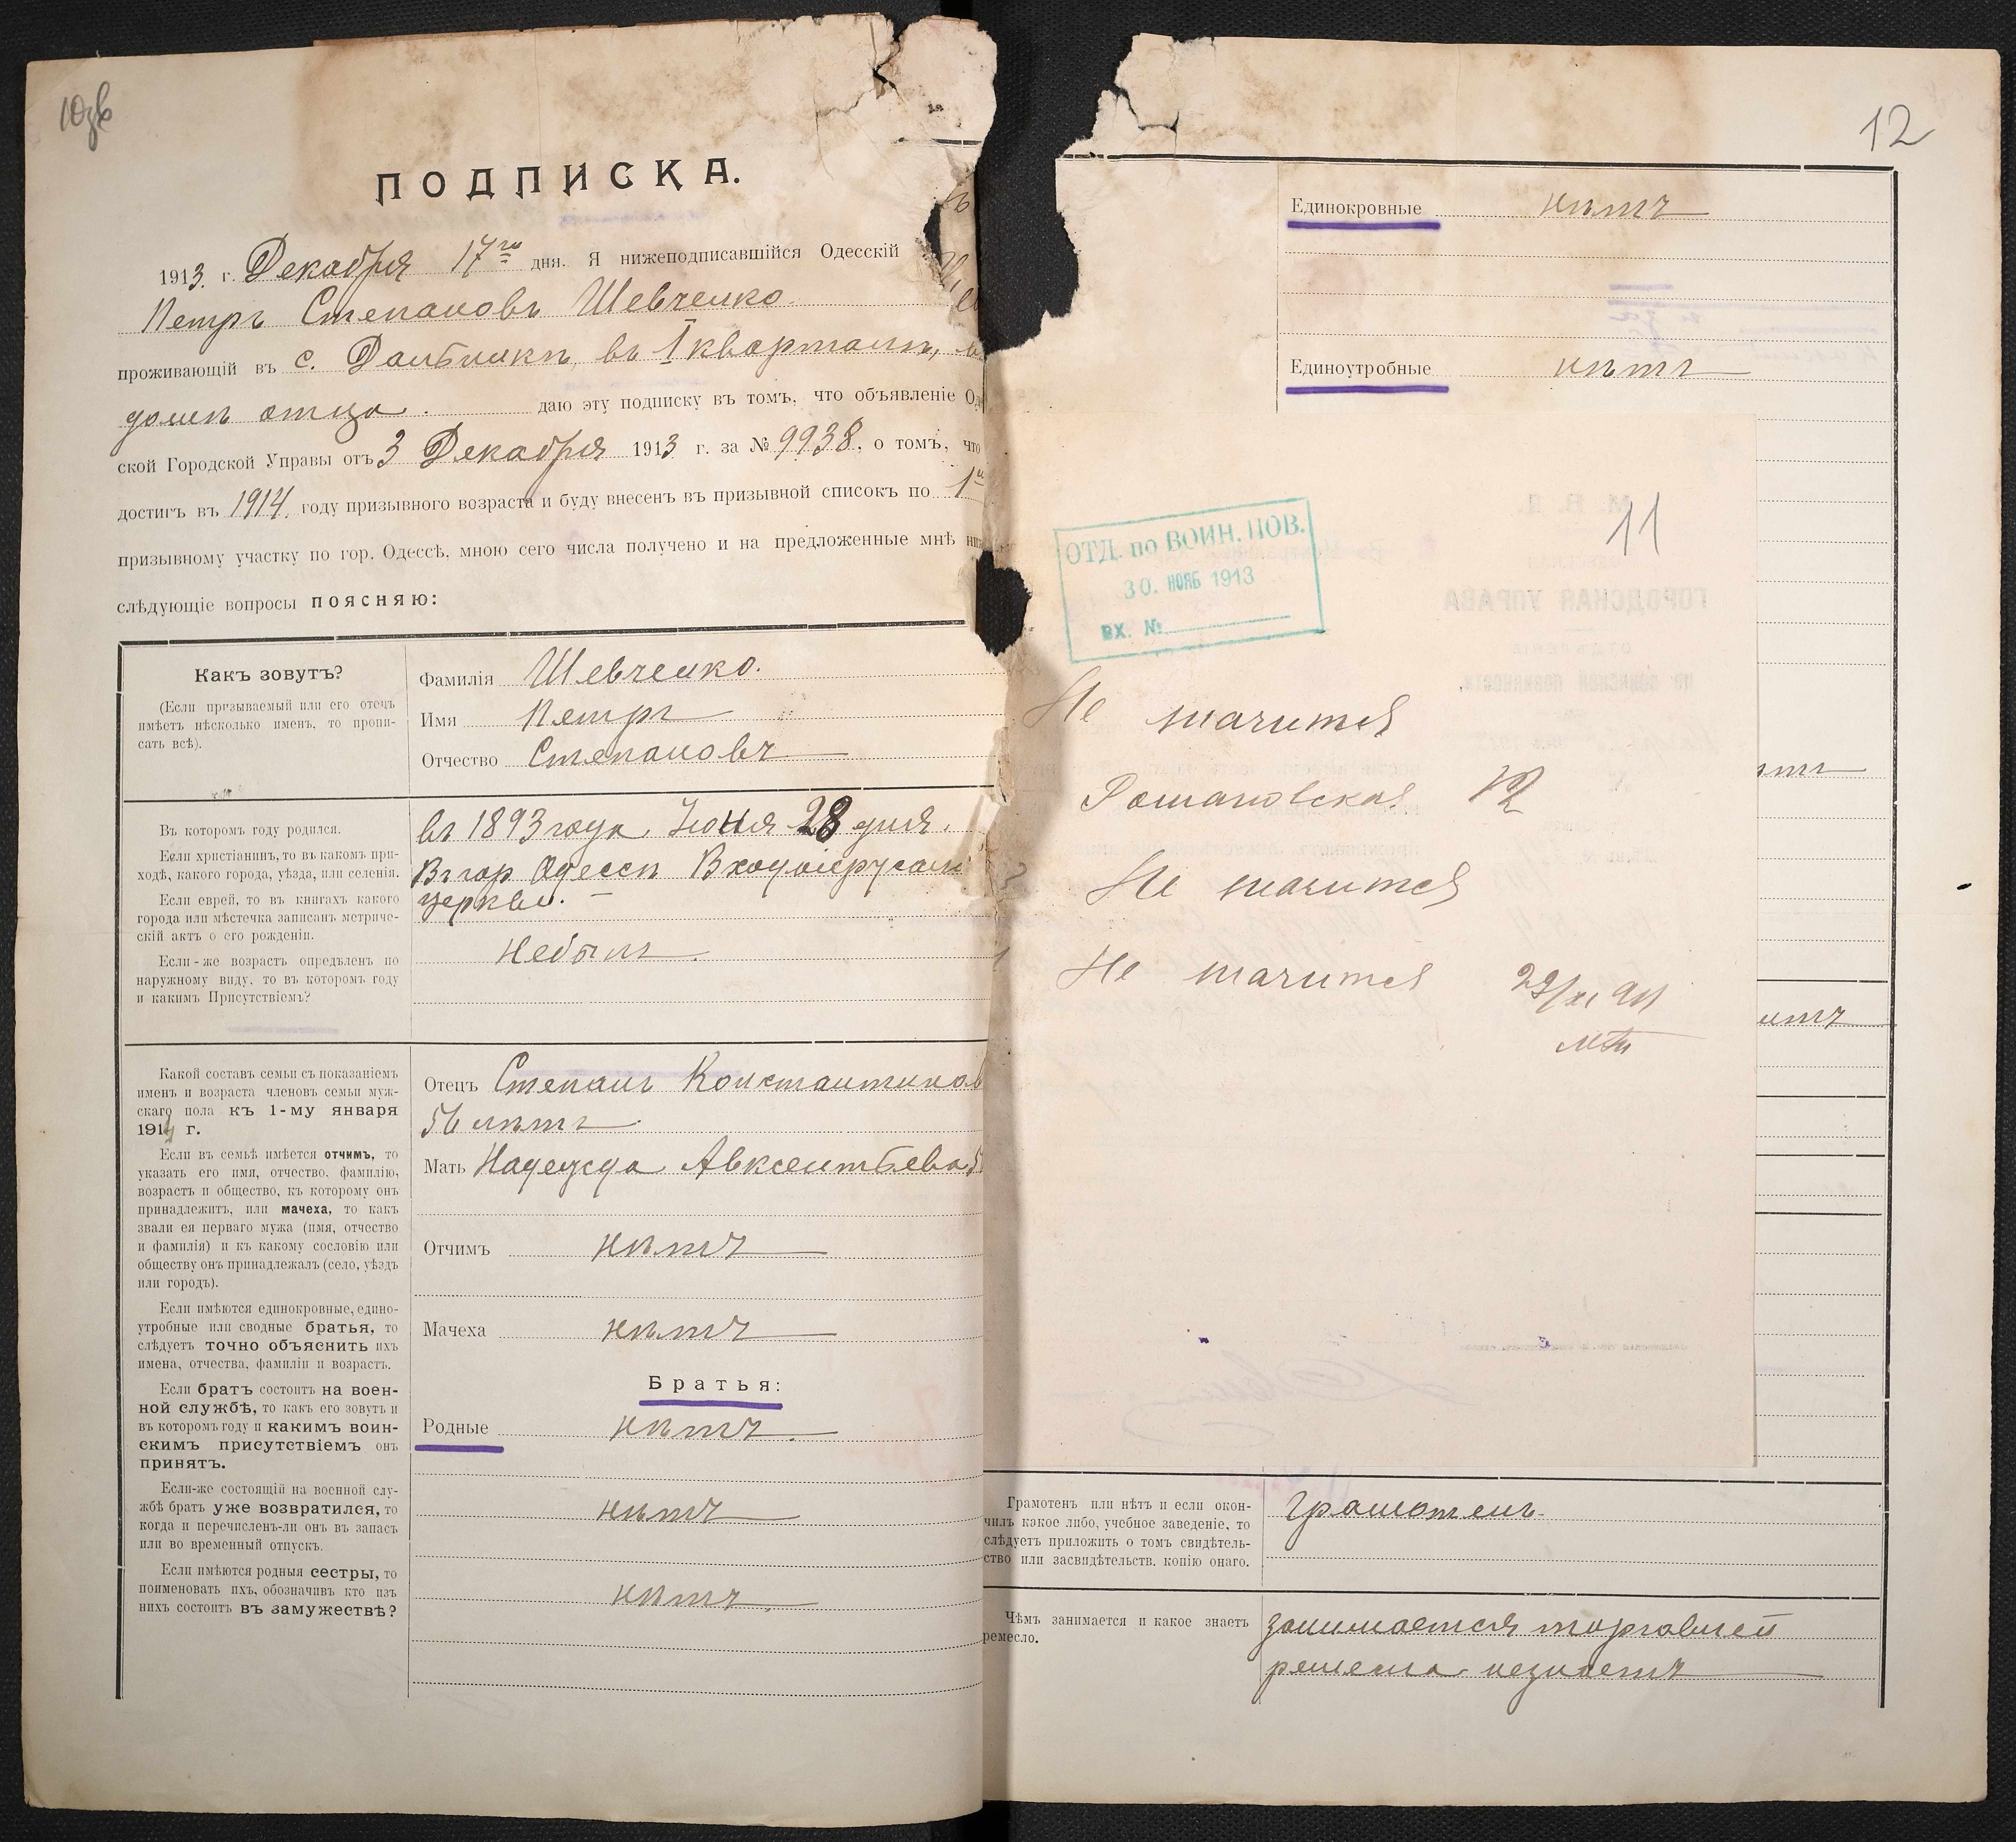 ПОДПИСКА.
1913 г. Декабря 17го дня. Я нижеподписавшійся Одесскій
Петръ Степановъ Шевченко
проживающій въ с. Дальникѣ, въ I кварталѣ, въ
домѣ отца. даю эту подписку въ томъ, что объявленіе Оде
ской Городской Управы отъ 3 Декабря 1913 г. за № 9938, о томъ, что
достигъ въ 1914 году призывного возраста и буду внесенъ въ призывной списокъ по 1му
призывному участку по гор. Одессѣ, мною сего числа получено и на предложенные мнѣ ни
слѣдующіе вопросы поясняю:
Какъ зовутъ?
(Если призываемый или его отецъ
имѣетъ нѣсколько именъ, то пропи-
сать всѣ).
Фамилія Шевченко.
Имя Петръ
Отчество Степановъ
Въ котором году родился.
Если христіанин, то въ какомъ при-
ходѣ, какого города, уѣзда, или селенія.
Если еврей, то въ книгахъ какого
города или мѣстечка записанъ метриче-
скій актъ о его рожденіи.
Если-же возрастъ опредѣленъ по
наружному виду, то въ котором году
и какимъ Присутствіемъ?
въ 1893 года Іюня 28 дня.
Въ гор Одессѣ Входоіерусалим
церкви.
Небылъ.
Какой составъ семьи съ показаніемъ
именъ и возраста членовъ семьи муж-
скаго пола къ 1-му января
1914 г.
Если въ семьѣ имѣется отчимъ, то
указать его имя, отчество, фамилію,
возрастъ и общество, къ которому онъ
принадлежитъ, или мачеха, то какъ
звали ея перваго мужа (имя, отчество
и фамилія) и къ какому сословію или
обществу онъ принадлежалъ (село, уѣздъ
или городъ).
Если имѣются единокровные, едино-
утробные или сводные братья, то
слѣдуетъ точно объяснить ихъ
имена, отчества, фамиліи и возрастъ.
Если братъ состоитъ на воен-
ной службѣ, то какъ его зовутъ и
въ котором году и какимъ воин-
скимъ присутствіемъ онъ
принятъ.
Если-же состоящій на военной слу-
жбѣ братъ уже возвратился, то
когда и перечисленъ-ли онъ въ запасъ
или во временный отпускъ.
Если имѣются родныя сестры, то
поименовать ихъ, обозначивъ кто изъ
нихъ состоитъ въ замужествѣ?
Отецъ Степанъ Константинов
56 лѣтъ
Мать Надежда Авксентьева 5
Отчимъ нѣтъ
Мачеха нѣтъ
Братья:
Родные нѣтъ.
нѣтъ
нѣтъ.
12
Единокровные нѣтъ
Единоутробные нѣтъ
11
ОТД. по ВОИН. ПОВ.
30. НОЯБ 1913
ВХ. №
Не значится
Романовская
Не значится
Не значится
Грамотенъ или нѣтъ и если окон-
чилъ какое либо, учебное заведеніе, то
слѣдуетъ приложить о томъ свидѣтель-
ство или засвидѣтельств. копію онаго.
Грамотенъ.
Чѣмъ занимается и какое знаетъ
ремесло.
занимается торговлей
ремесла незнаетъ